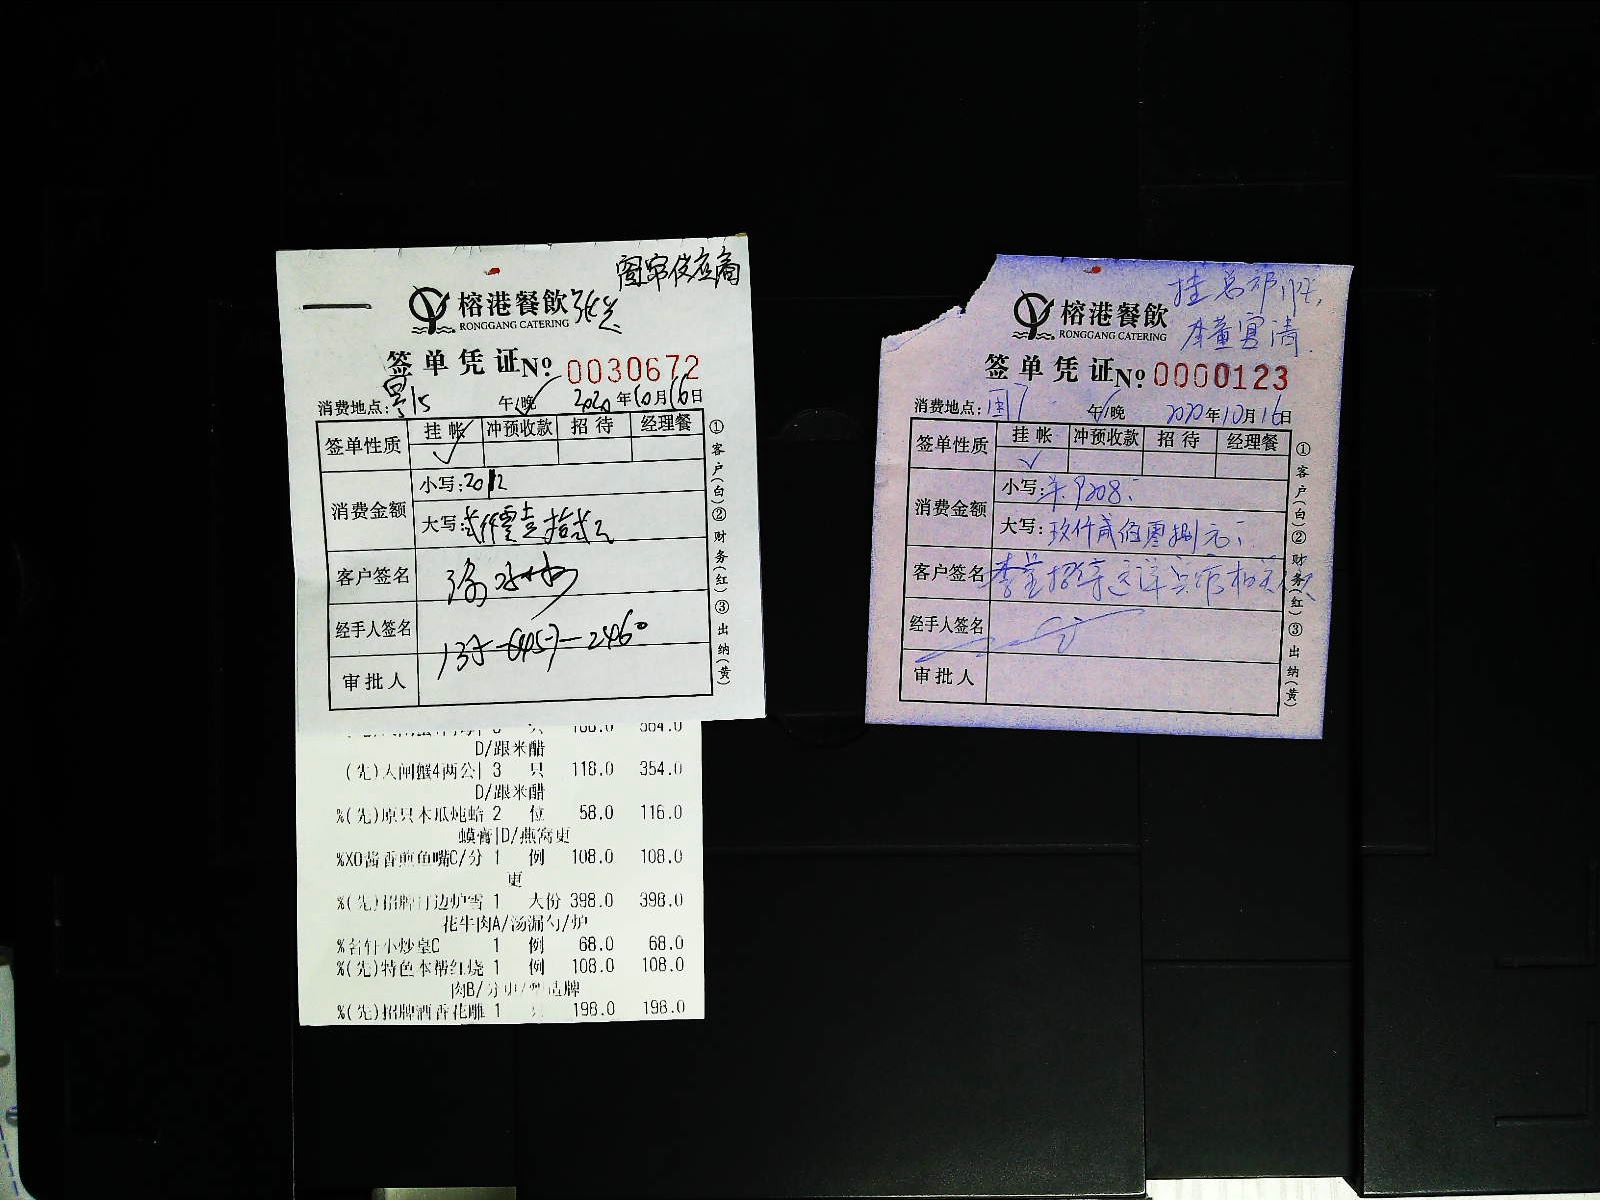 窗帘供应商
榕港餐飲 张总
RONGGANG CATERING
签单凭证 No 0030672
消费地点: 15 午/晚 2020年10月16日
签单性质 挂帐 冲预收款 招待 经理餐
消费金额 小写:2012
大写:贰仟零壹拾贰元
客户签名
经手人签名
审批人
①客户(白)②财务(红)③出纳(黄)
D/跟米醋
(先)大闸蟹4两公| 3 只 118.0 354.0
D/跟米醋
%(先)原只木瓜炖蛤 2 位 58.0 116.0
蟆膏|D/燕窝更
%XO酱香煎鱼嘴C/分 1 例 108.0 108.0
更
%(先)招牌打边炉雪 1 大份 398.0 398.0
花牛肉A/汤漏勺/炉
小炒皇C 1 例 68.0 68.0
%(先)特色本帮红烧 1 例 108.0 108.0
肉B/
%(先)招牌酒香花雕 1 198.0 198.0
挂总部
李董宴请
榕港餐飲
RONGGANG CATERING
签单凭证 No 0000123
消费地点: 午/晚 2020年10月16日
签单性质 挂帐 冲预收款 招待 经理餐
消费金额 小写:羊9208
大写:玖仟贰佰零捌元
客户签名 李董招待
经手人签名
审批人
①客户(白)②财务(红)③出纳(黄)